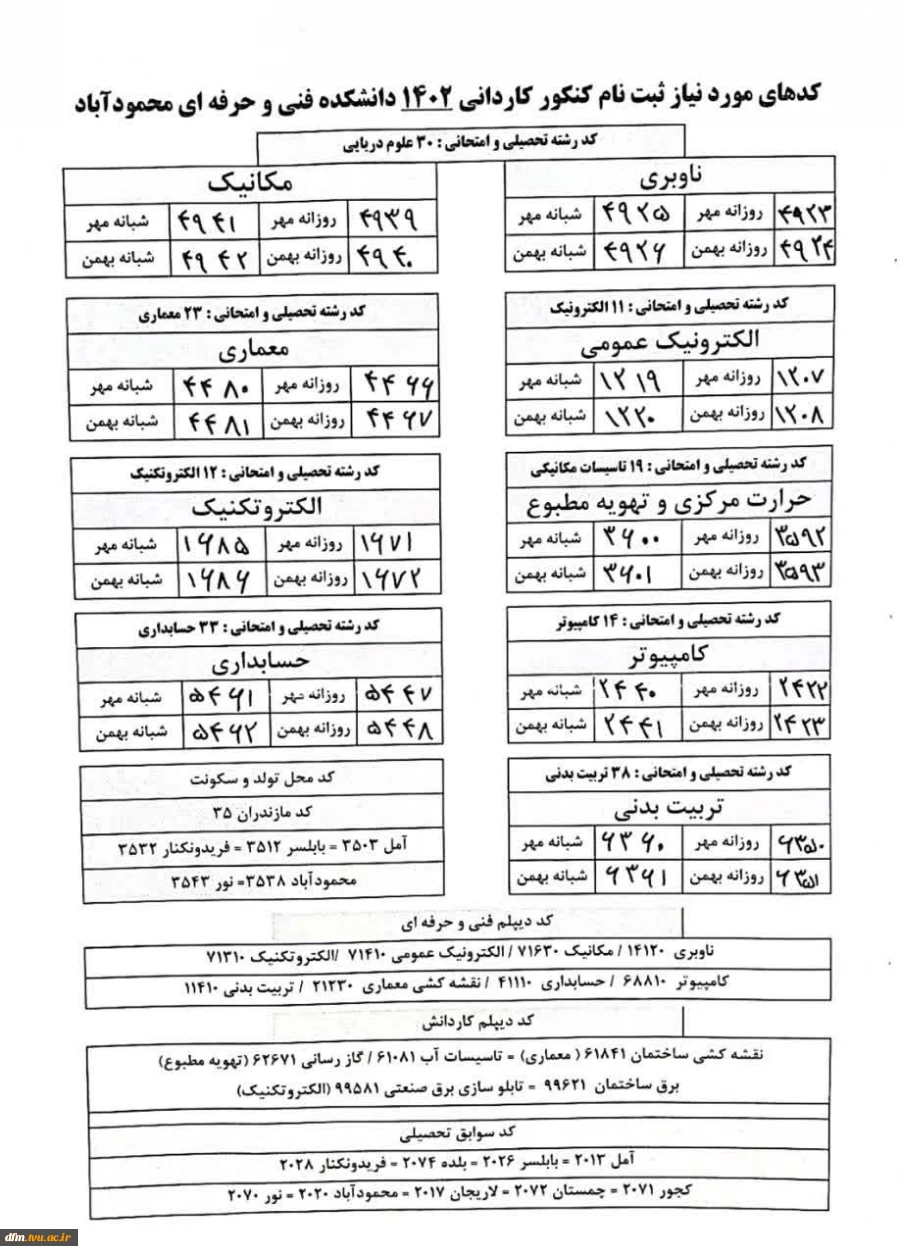 کدهای مورد نیاز ثبت نام کنکور کاردانی ۱۴۰۲ دانشکده فنی و حرفه ای محمودآباد
کد رشته تحصیلی و امتحانی : ۳۰ علوم دریایی
ناوبری
روزانه مهر ۴۹۲۳ شبانه مهر ۴۹۲۵
روزانه بهمن ۴۹۲۴ شبانه بهمن ۴۹۲۶
مکانیک
روزانه مهر ۴۹۳۹ شبانه مهر ۴۹۴۱
روزانه بهمن ۴۹۴۰ شبانه بهمن ۴۹۴۲
کد رشته تحصیلی و امتحانی : ۱۱ الکترونیک
الکترونیک عمومی
روزانه مهر ۱۲۰۷ شبانه مهر ۱۲۱۹
روزانه بهمن ۱۲۰۸ شبانه بهمن ۱۲۲۰
کد رشته تحصیلی و امتحانی : ۲۳ معماری
معماری
روزانه مهر ۴۴۶۶ شبانه مهر ۴۴۸۰
روزانه بهمن ۴۴۶۷ شبانه بهمن ۴۴۸۱
کد رشته تحصیلی و امتحانی : ۱۹ تاسیسات مکانیکی
حرارت مرکزی و تهویه مطبوع
روزانه مهر ۳۵۹۲ شبانه مهر ۳۶۰۰
روزانه بهمن ۳۵۹۳ شبانه بهمن ۳۶۰۱
کد رشته تحصیلی و امتحانی : ۱۲ الکتروتکنیک
الکتروتکنیک
روزانه مهر ۱۶۷۱ شبانه مهر ۱۶۸۵
روزانه بهمن ۱۶۷۲ شبانه بهمن ۱۶۸۶
کد رشته تحصیلی و امتحانی : ۱۴ کامپیوتر
کامپیوتر
روزانه مهر ۲۴۲۲ شبانه مهر ۲۴۴۰
روزانه بهمن ۲۴۲۳ شبانه بهمن ۲۴۴۱
کد رشته تحصیلی و امتحانی : ۳۳ حسابداری
حسابداری
روزانه مهر ۵۴۴۷ شبانه مهر ۵۴۶۱
روزانه بهمن ۵۴۴۸ شبانه بهمن ۵۴۶۲
کد رشته تحصیلی و امتحانی : ۳۸ تربیت بدنی
تربیت بدنی
روزانه مهر ۶۳۵۰ شبانه مهر ۶۳۶۰
روزانه بهمن ۶۳۵۱ شبانه بهمن ۶۳۶۱
کد محل تولد و سکونت
کد مازندران ۳۵
آمل ۳۵۰۳ = بابلسر ۳۵۱۲ = فریدونکنار ۳۵۳۲
محمودآباد ۳۵۳۸= نور ۳۵۴۳
کد دیپلم فنی و حرفه ای
ناوبری ۱۴۱۲۰ / مکانیک ۷۱۶۳۰ / الکترونیک عمومی ۷۱۴۱۰ /الکتروتکنیک ۷۱۳۱۰
کامپیوتر ۶۸۸۱۰ / حسابداری ۴۱۱۱۰ / نقشه کشی معماری ۲۱۲۳۰ / تربیت بدنی ۱۱۴۱۰
کد دیپلم کاردانش
نقشه کشی ساختمان ۶۱۸۴۱ ( معماری) = تاسیسات آب ۶۱۰۸۱ / گاز رسانی ۶۲۶۷۱ (تهویه مطبوع)
برق ساختمان ۹۹۶۲۱ = تابلو سازی برق صنعتی ۹۹۵۸۱ (الکتروتکنیک)
کد سوابق تحصیلی
آمل ۲۰۱۳ = بابلسر ۲۰۲۶ = بلده ۲۰۷۴ = فریدونکنار ۲۰۲۸
کجور ۲۰۷۱ = چمستان ۲۰۷۲ = لاریجان ۲۰۱۷ = محمودآباد ۲۰۲۰ = نور ۲۰۷۰
dfm.tvu.ac.ir